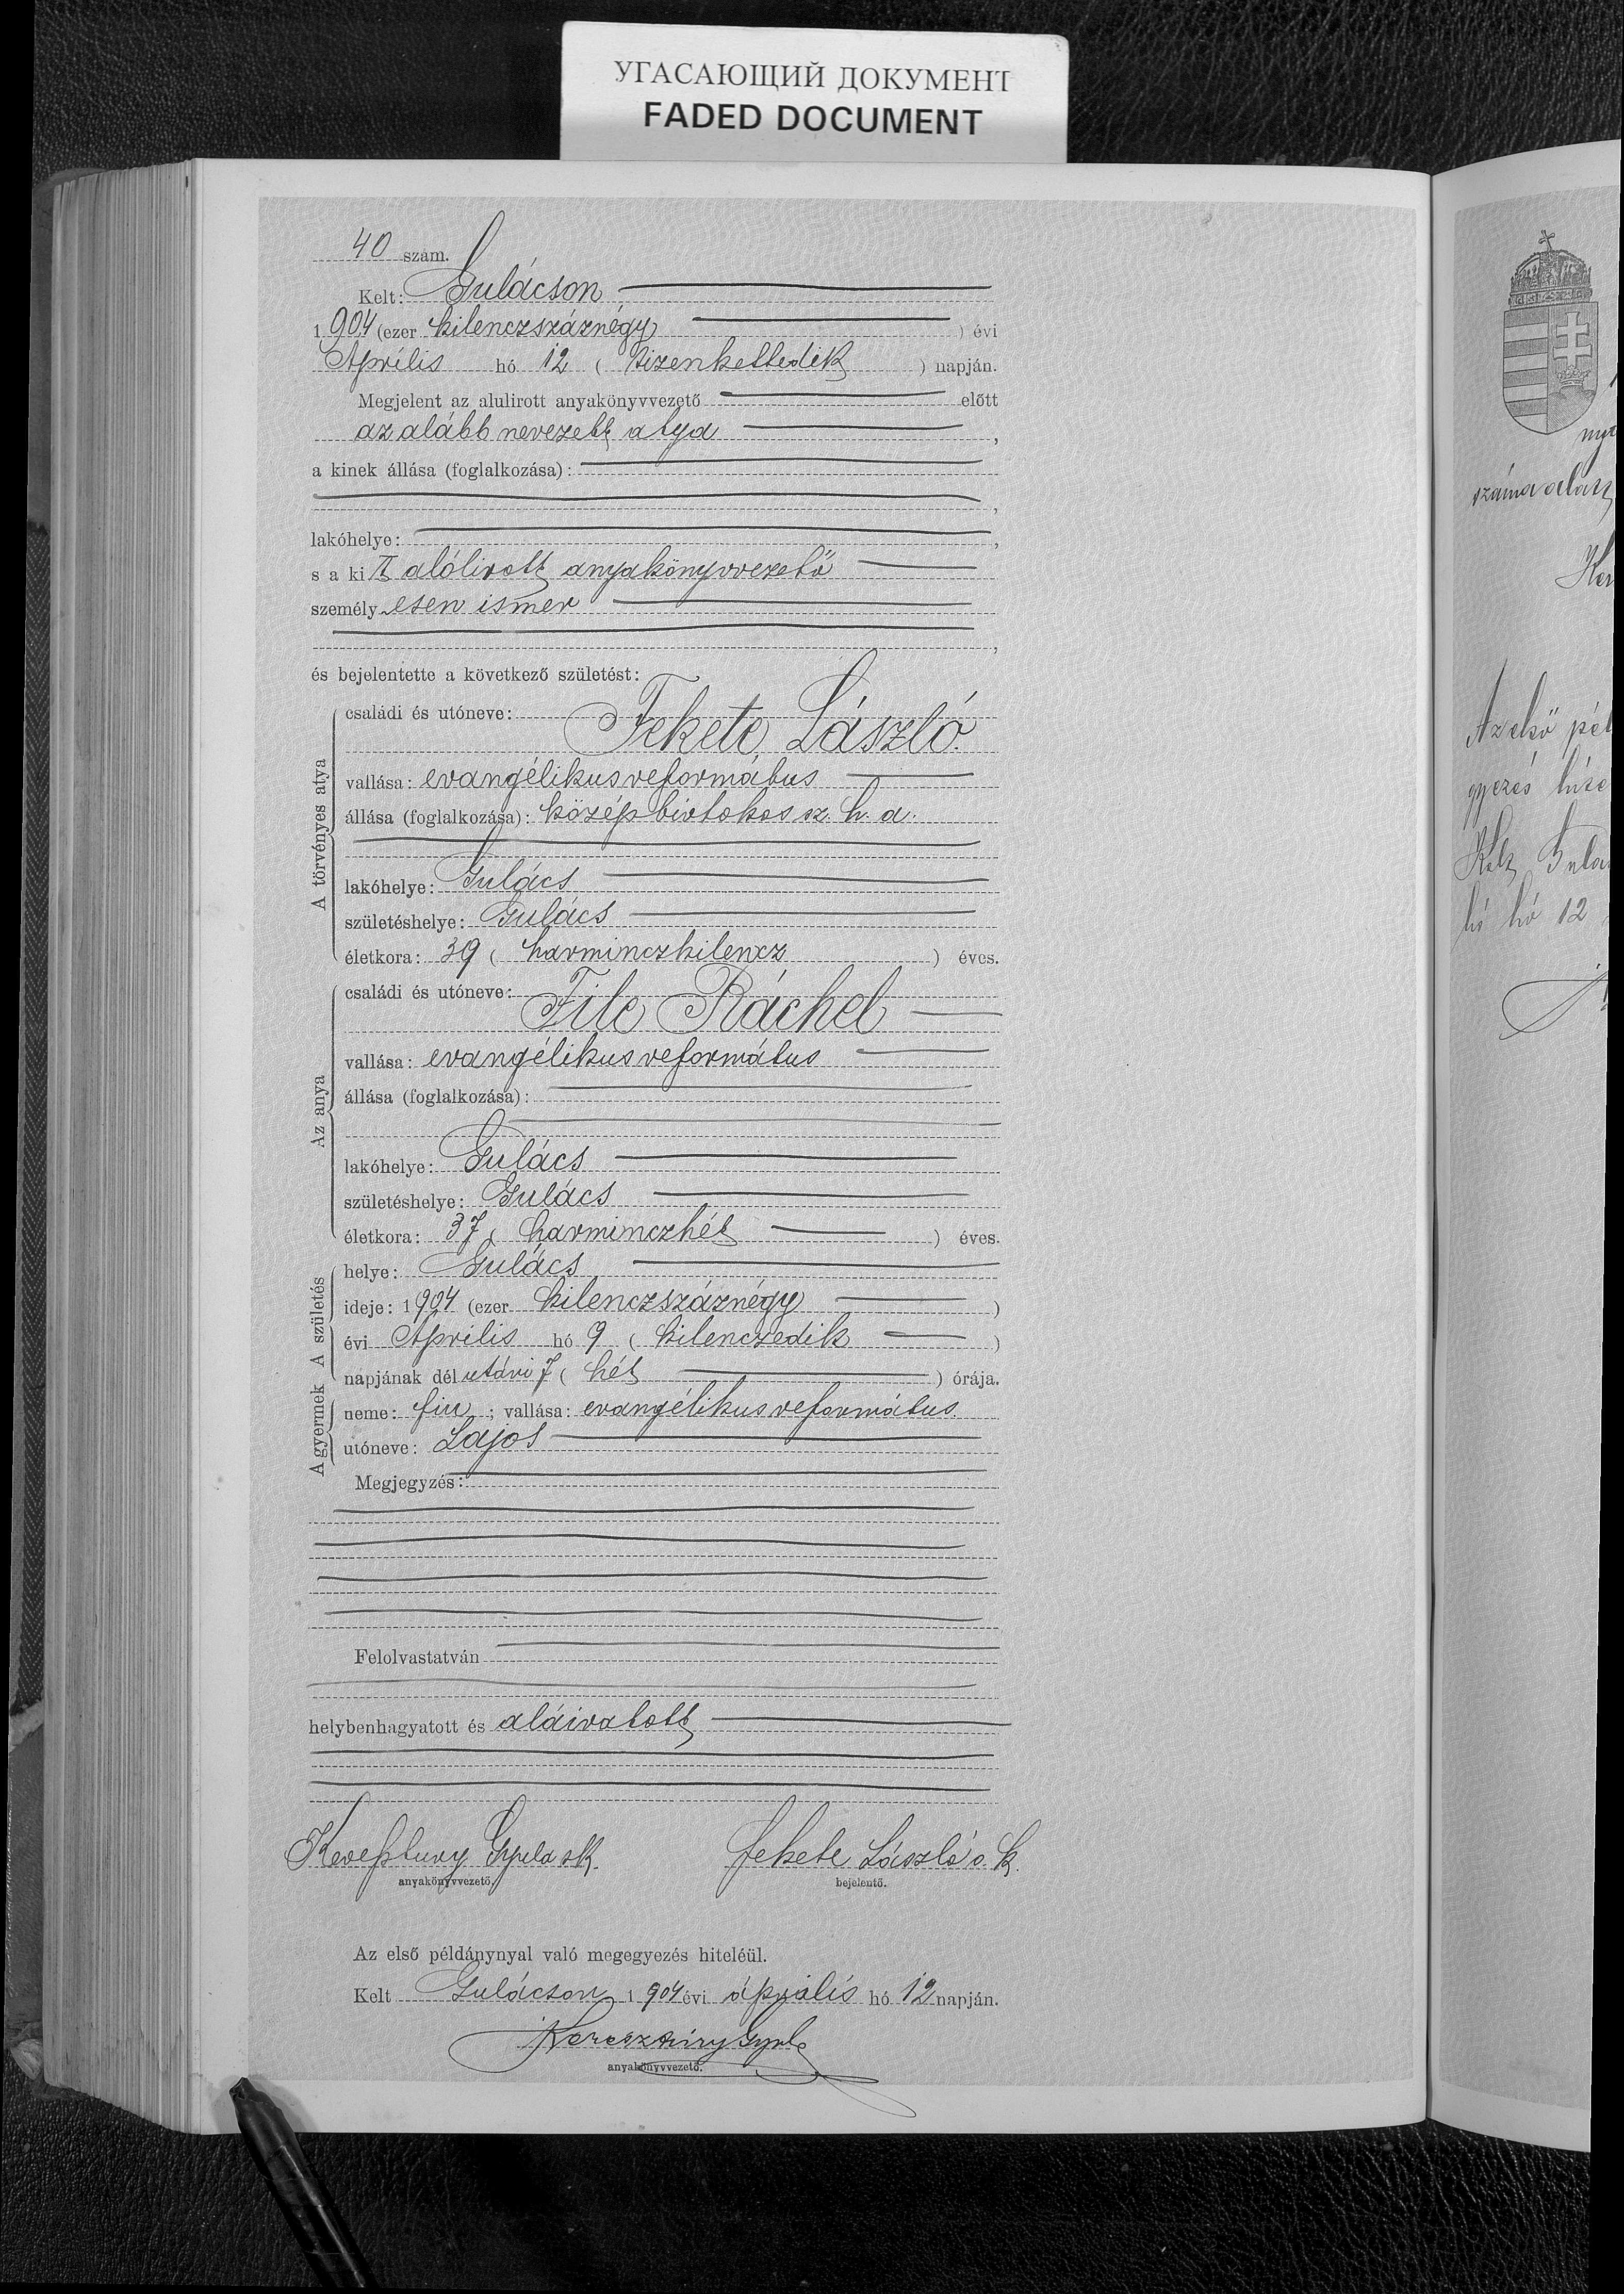 УГАСАЮЩИЙ ДОКУМЕНТ
FADED DOCUMENT
40 szám.
Kelt: Gulácson
1904 (ezer kilenczszáznégy ) évi
Április hó 12 ( tizenkettedik ) napján.
Megjelent az alulirott anyakönyvvezető előtt
az alább nevezett atya ,
a kinek állása (foglalkozása):
,
lakóhelye: ,
s a kit alólirott anyakönyvvezető
személyesen ismer
,
és bejelentette a következő születést:
A törvényes atya
családi és utóneve:
Fekete László.
vallása: evangélikus református
állása (foglalkozása): középbirtokos sz. h. a.
lakóhelye: Gulács
születéshelye: Gulács
életkora: 39 ( harminczkilencz ) éves.
Az anya
családi és utóneve:
File Ráchel
vallása: evangélikus református
állása (foglalkozása):
lakóhelye: Gulács
születéshelye: Gulács
életkora: 37 ( harminczhét ) éves.
A születés
helye: Gulács
ideje: 1904 (ezer kilenczszáznégy )
évi Április hó 9 ( kilenczedik )
napjának délutáni 7 ( hét ) órája.
A gyermek
neme: fiu ; vallása: evangélikus református.
utóneve: Lajos
Megjegyzés:
Felolvastatván
helybenhagyatott és aláiratott
Keresztury Gyula sk. Fekete László s. k.
anyakönyvvezető. bejelentő.
Az első példánynyal való megegyezés hiteléül.
Kelt Gulácson 1904 évi április hó 12 napján.
Keresztury Gyula
anyakönyvvezető.
száma alatt
Az első pél
gyezés hite
Kelt Gulá
lis hó 12